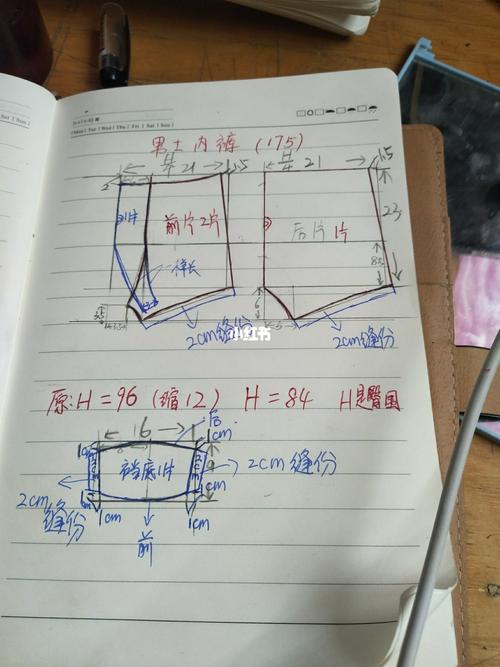 Mon | Tue | Wed | Thu | Fri | Sat | Sun
男士内裤 (175)
H/4 21 1.5
H/4 21 1.5
2
前片2片
后片1片
23
8
6
3.5
2cm缝份
2cm缝份
小红书
原:H=96 (缩12) H=84 H是臀围
16 后
1cm 1cm
裆底1片
9
2cm缝份
1cm
2cm缝份
1cm 1cm
前